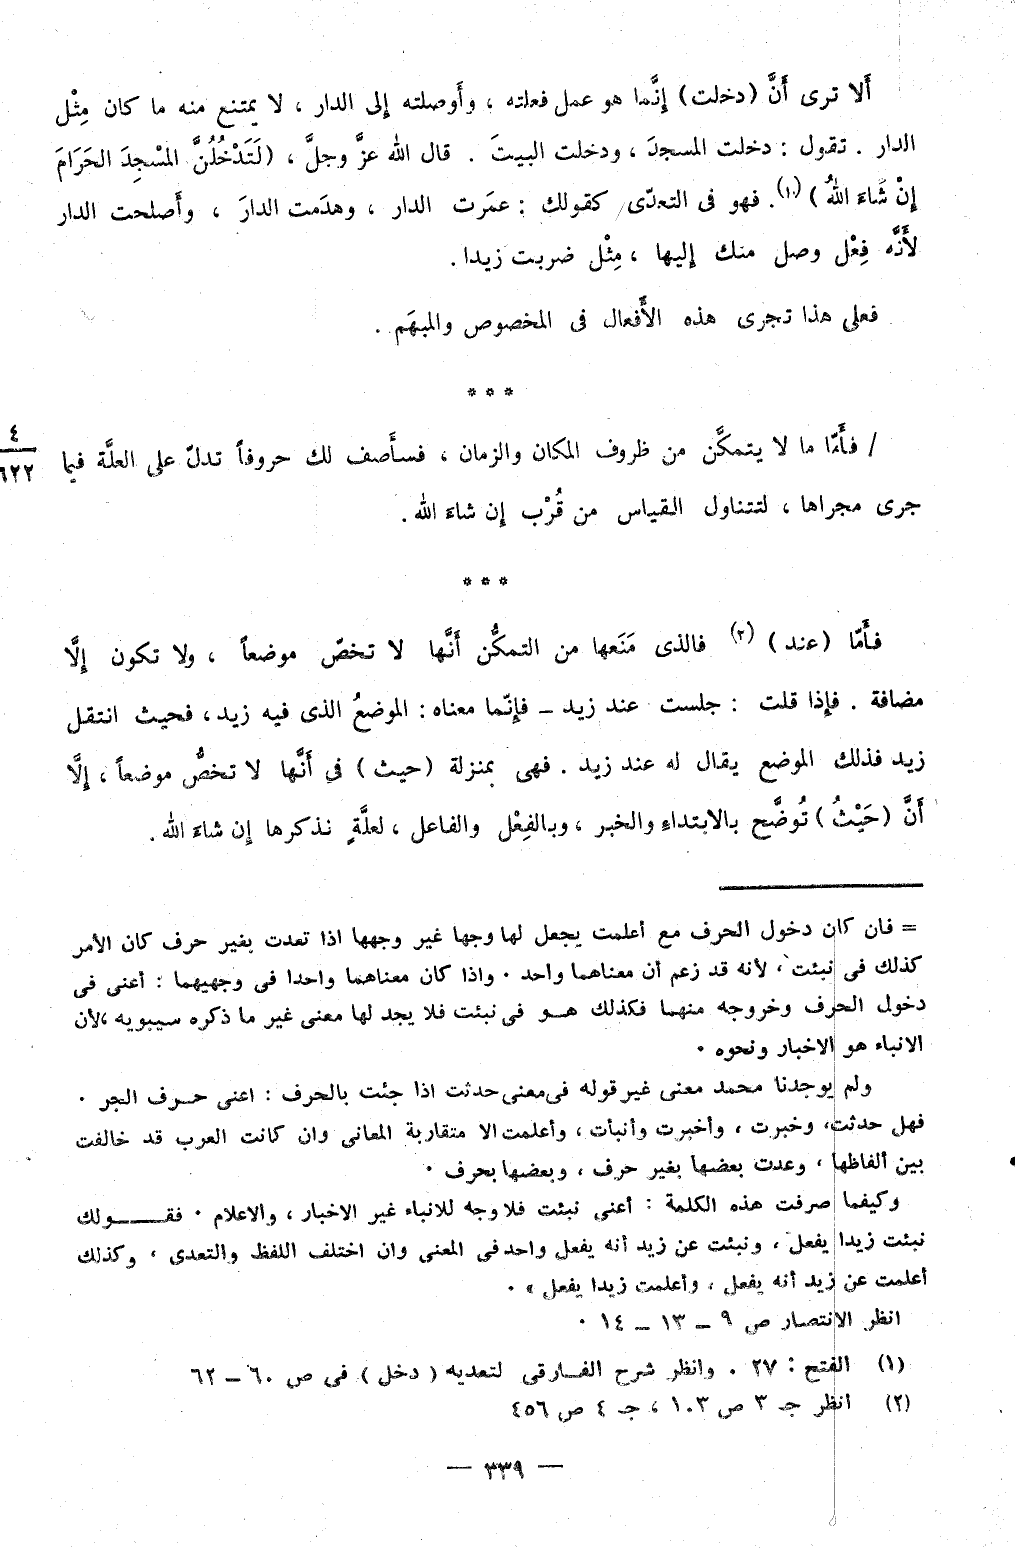 ألا ترى أَنَّ (دخلت) إِنَّما هو عمل فعلته ، وأَوصلته إِلى الدار ، لا يمتنع منه ما كان مِثْل
الدار . تقول : دخلت المسجدَ ، ودخلت البيتَ . قال الله عزَّ وجلَّ ، (لَتَدْخُلُنَّ المَسْجِدَ الحَرَامَ
إِنْ شَاءَ اللهُ) (١). فهو فى التعدّى كقولك : عمَرت الدار ، وهدَمت الدارَ ، وأَصلحت الدار
لأَنَّه فِعْل وصل منك إليها ، مِثْل ضربت زيدا .
فعلى هذا تجرى هذه الأَفعال فى المخصوص والمبهَم .
* * *
/ فأَمّا ما لا يتمكَّن من ظروف المكان والزمان ، فسأَصف لك حروفاً تدلّ على العلَّة فيما
٤
٦٢٢
جرى مجراها ، لتتناول القياس من قُرْب إِن شاءَ الله .
* * *
فأَمّا (عند) (٢) فالذى مَنَعها من التمكُّن أَنَّها لا تخصّ موضعاً ، ولا تكون إِلَّا
مضافة . فإِذا قلت : جلست عند زيد – فإِنّما معناه : الموضعُ الذى فيه زيد ، فحيث انتقل
زيد فذلك الموضع يقال له عند زيد . فهى بمنزلة (حيث) فى أَنَّها لا تخصُّ موضعاً ، إِلَّا
أَنَّ (حَيْثُ) تُوضَّح بالابتداءِ والخبر ، وبالفِعْل والفاعل ، لعلَّةٍ نذكرها إِن شاءَ الله .
= فان كان دخول الحرف مع أعلمت يجعل لها وجها غير وجهها اذا تعدت بغير حرف كان الأمر
كذلك فى نبئت ، لأنه قد زعم أن معناهما واحد . واذا كان معناهما واحدا فى وجهيهما : أعنى فى
دخول الحرف وخروجه منهما فكذلك هو فى نبئت فلا يجد لها معنى غير ما ذكره سيبويه ، لأن
الانباء هو الاخبار ونحوه .
ولم يوجدنا محمد معنى غير قوله فى معنى حدثت اذا جئت بالحرف : اعنى حرف الجر .
فهل حدثت ، وخبرت ، وأخبرت وأنبأت ، وأعلمت الا متقاربة المعانى وان كانت العرب قد خالفت
بين ألفاظها ، وعدت بعضها بغير حرف ، وبعضها بحرف .
وكيفما صرفت هذه الكلمة : أعنى نبئت فلا وجه للانباء غير الاخبار ، والاعلام . فقولك
نبئت زيدا يفعل ، ونبئت عن زيد أنه يفعل واحد فى المعنى وان اختلف اللفظ والتعدى ، وكذلك
أعلمت عن زيد أنه يفعل ، وأعلمت زيدا يفعل » .
انظر الانتصار ص ٩ – ١٣ – ١٤ .
(١) الفتح : ٢٧ . وانظر شرح الفارقى لتعديه (دخل) فى ص ٦٠ – ٦٢
(٢) انظر جـ ٣ ص ١٠٣ ، جـ ٤ ص ٤٥٦
— ٣٣٩ —